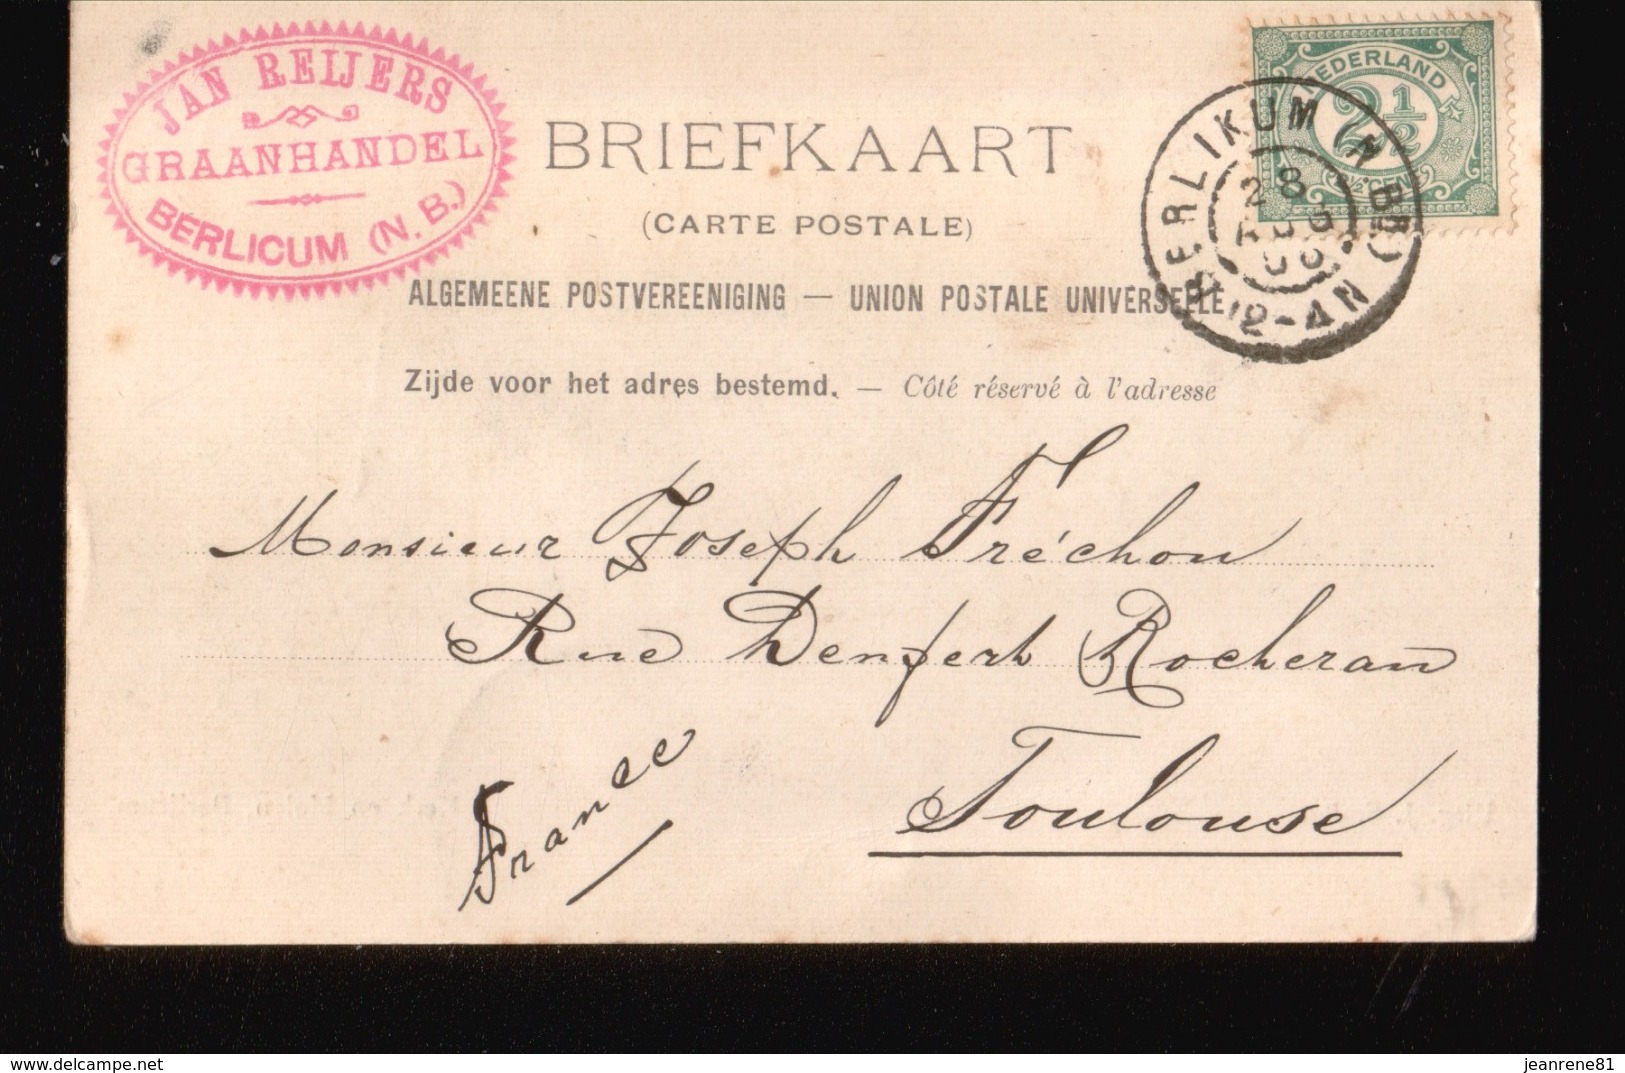 JAN REIJERS
GRAANHANDEL
BERLICUM (N. B.)
BRIEFKAART
(CARTE POSTALE)
ALGEMEENE POSTVEREENIGING — UNION POSTALE UNIVERSELLE
Zijde voor het adres bestemd. — Côté réservé à l'adresse
NEDERLAND
2½
2½ CENT
BERLIKUM (N. BR.)
28
12-4N
Monsieur Joseph Fréchou
Rue Denfert Rocherau
Toulouse
France
delcampe.net
jeanrene81